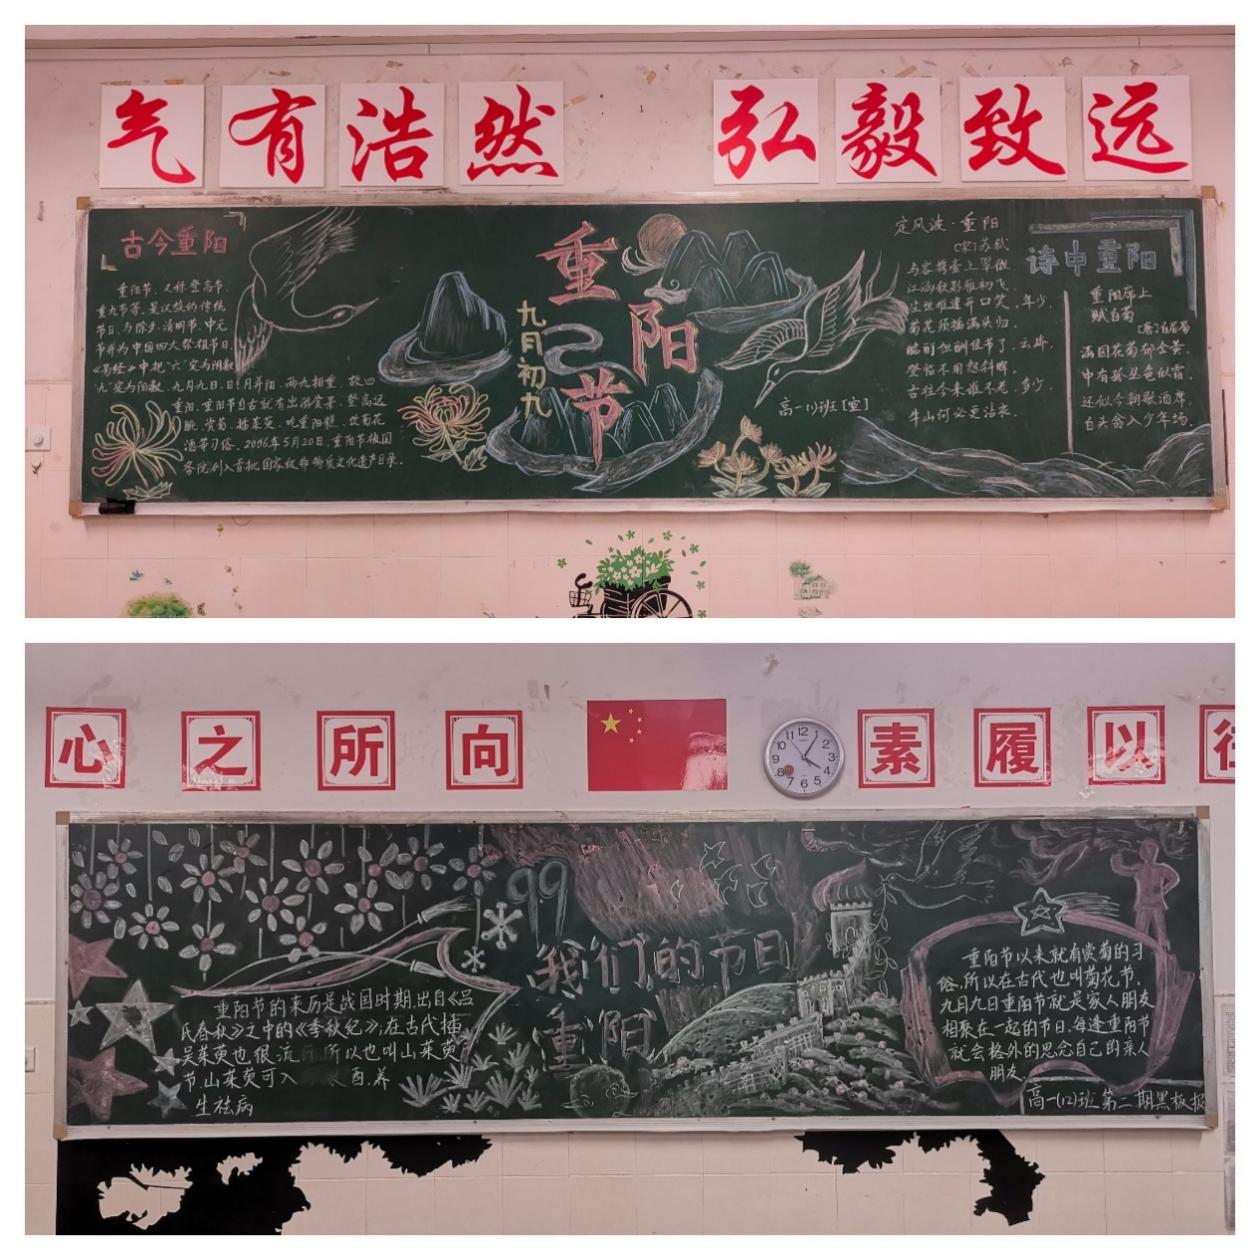 气有浩然 弘毅致远
古今重阳
重阳节，又称登高节、
重九节等，是汉族的传统
节日，与除夕、清明节、中元
节并为中国四大祭祖节日，
《易经》中把"六"定为阴数
"九"定为阳数，九月九日，日月并阳，两九相重，故曰
重阳。重阳节自古就有出游赏景、登高远
眺、赏菊、插茱萸、吃重阳糕、饮菊花
酒等习俗。2006年5月20日，重阳节被国
务院列入首批国家级非物质文化遗产目录。
重阳节
九月初九
高一(1)班[宣]
定风波·重阳
[宋]苏轼
与客携壶上翠微，
江涵秋影雁初飞，
尘世难逢开口笑，年少，
菊花须插满头归。
酩酊但酬佳节了，云峤，
登临不用怨斜晖。
古往今来谁不老，多少，
牛山何必更沾衣。
诗中重阳
重阳席上
赋白菊
[唐]白居易
满园花菊郁金黄，
中有孤丛色似霜。
还似今朝歌酒席，
白头翁入少年场。
心之所向 素履以往
12 1 2 3 4 5 6 7 8 9 10 11
99
我们的节日
重阳
重阳节的来历是战国时期，出自《吕
氏春秋》之中的《季秋纪》；在古代插
吴茱萸也很流 所以也叫山茱萸
节，山茱萸可入 酉，养
生祛病
重阳节以来就有赏菊的习
俗，所以在古代也叫菊花节，
九月九日重阳节就是家人朋友
相聚在一起的节日，每逢重阳节
就会格外的思念自己的亲人
朋友。
高一(12)班 第二期黑板报